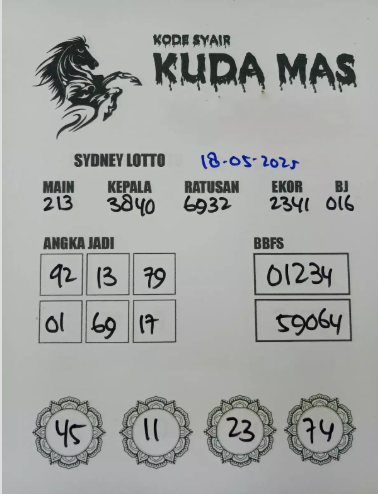 KODE SYAIR
KUDA MAS
SYDNEY LOTTO 18-05-2025
MAIN KEPALA RATUSAN EKOR BJ
213 3840 6932 2341 016
ANGKA JADI BBFS
92 13 79 01234
01 69 17 59064
45 11 23 74